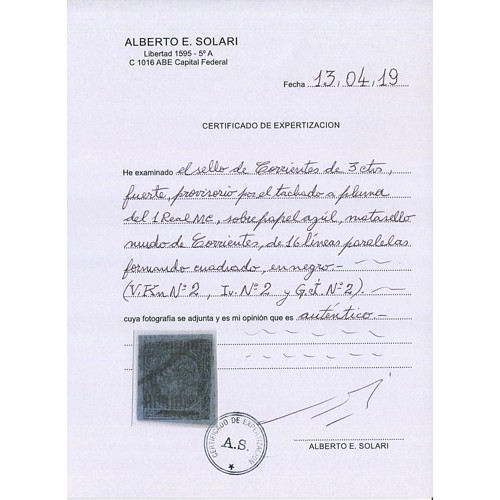 ALBERTO E. SOLARI
Libertad 1595 - 5º A
C 1016 ABE Capital Federal
Fecha 13,04,19
CERTIFICADO DE EXPERTIZACION
He examinado el sello de Corrientes de 3 ctvs,
fuerte, provisorio por el tachado a pluma
del 1 Real MC, sobre papel azúl, matasello
mudo de Corrientes, de 16 líneas paralelas
formando cuadrado, en negro.-
(V.Kn Nº2, Iv. Nº2 y G.J. Nº2).
cuya fotografia se adjunta y es mi opinión que es auténtico.-
CERTIFICADO DE EXPERTIZACION
A.S.
ALBERTO E. SOLARI